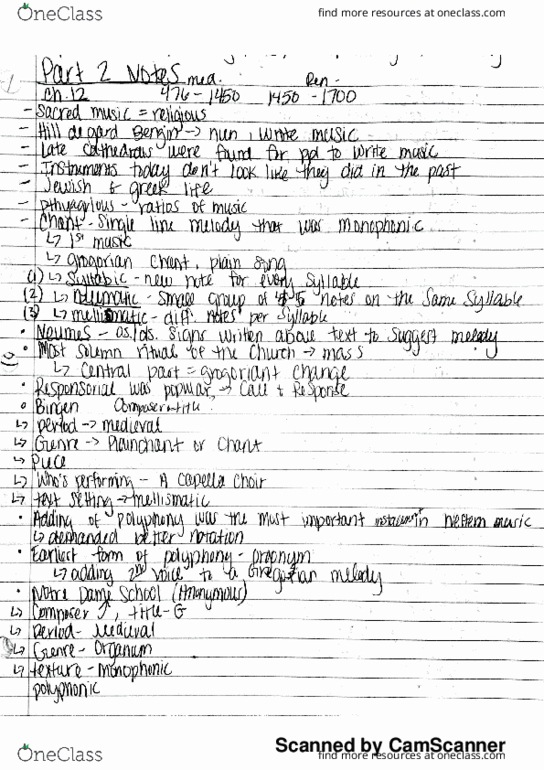 OneClass
find more resources at oneclass.com
Part 2 Notes med. Ren -
Ch.12 476-1450 1450-1700
- Sacred music = religious
- Hill de gard Bengin → nun, wrote music
- Late cathedrals were found for ppl to write music
- Instruments today don't look like they did in the past
- Jewish & greek life
- - ratios of music
- Chant - Single line melody that was monophonic
↳ 1st music
↳ grogorian chant, plain song
(1) ↳ Syllabic - new note for every syllable
(2) ↳ - small group of 4-5 notes on the same syllable
(3) ↳ - diff. notes per syllable
• Neumes - signs written above text to suggest melody
• Most solumn ritual of the Church → mass
↳ Central part = grogoriant change
• Responsorial was popular → Call & Response
• Bingen Composer + title
↳ period → medieval
↳ Genre → Plainchant or Chant
↳ Piece
↳ Who's performing - A capella choir
↳ text setting → mellismatic
• Adding of polyphony was the most important in western music
↳ demanded better notation
• Earliest form of polyphony -
↳ adding 2nd voice to a Gregorian melody
• Notre Dame School (Anonymous)
↳ Composer ↑, title - G
↳ Period - Medieval
↳ Genre - Organum
↳ texture - monophonic
polyphonic
Scanned by CamScanner
OneClass
find more resources at oneclass.com